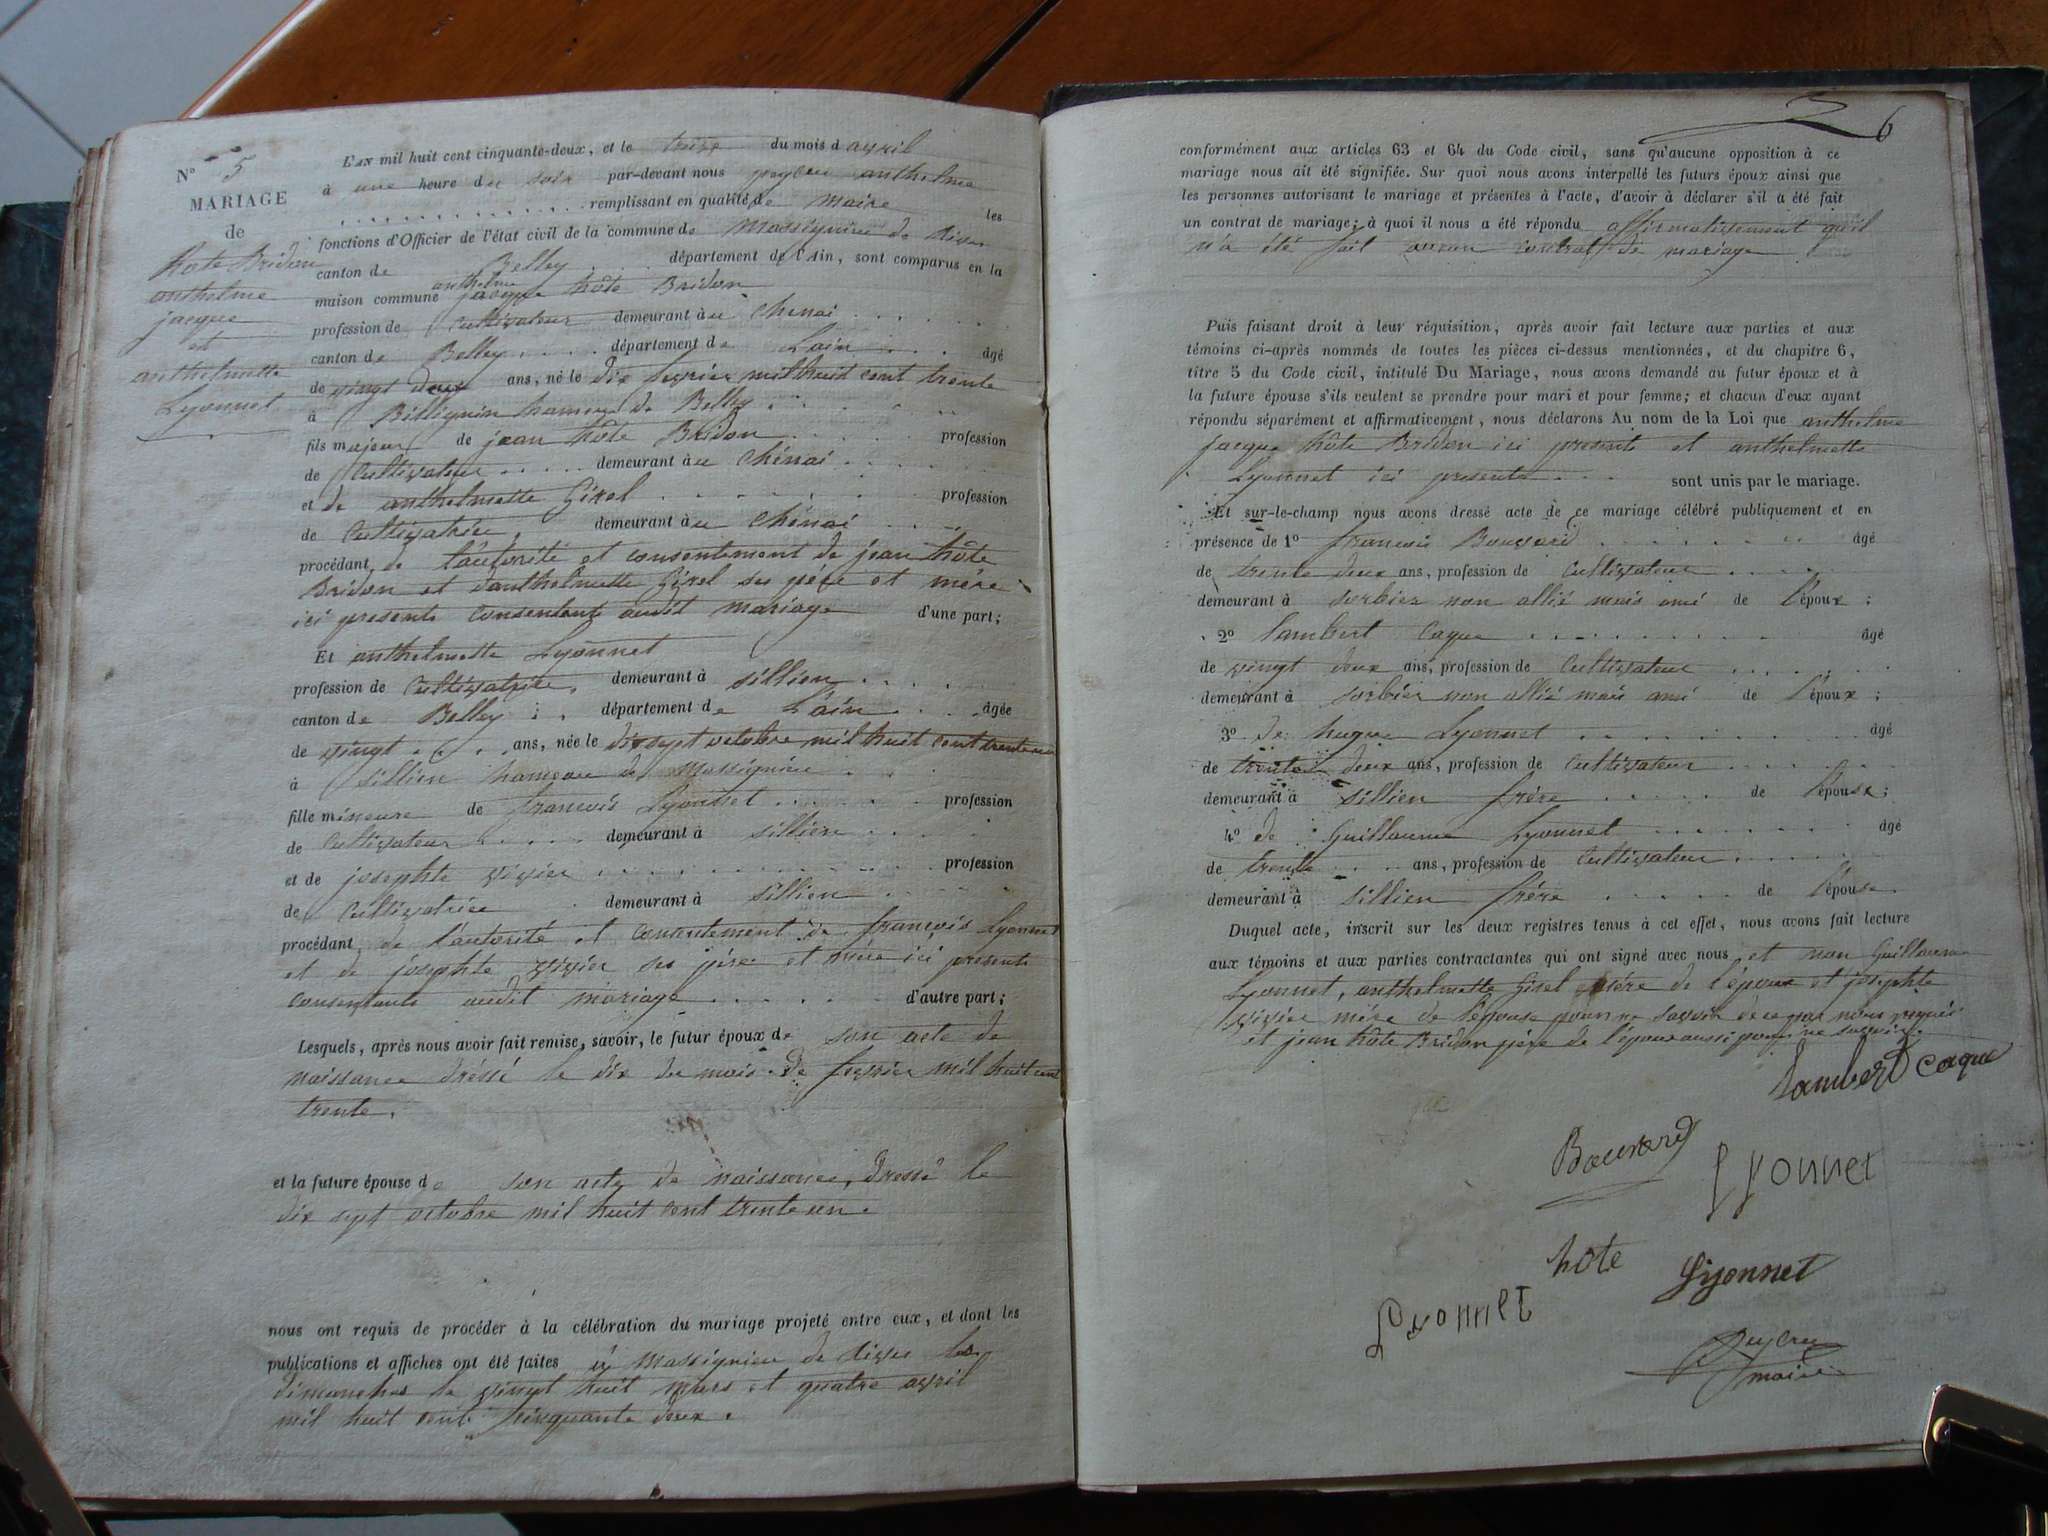 N° 5
MARIAGE
de
hote Bridon
anthelme
jacque
et
anthelmette
Lyonnet
L'AN mil huit cent cinquante-deux, et le treize du mois d avril
à une heure du soir par-devant nous peyleu anthelme
remplissant en qualité de maire les
fonctions d'Officier de l'état civil de la commune de Massignieu de Rives
canton de Belley département de l'Ain, sont comparus en la
maison commune anthelme jacque hôte Bridon
profession de Cultivateur demeurant à au Chenai
canton de Belley département de Lain âgé
de vingt deux ans, né le dix fevrier mil huit cent trente
à Billignin hameau de Belley
fils majeur de jean hôte Bridon profession
de Cultivateur demeurant à au Chénai
et de anthelmette Girel profession
de Cultivatrice demeurant à au Chénai
procédant de l'autorité et consentement de jean hôte
Bridon et danthelmette Girel ses père et mère
ici presents consentant audit mariage d'une part;
Et anthelmette Lyonnet
profession de Cultivatrice demeurant à sillien
canton de Belley département de L'ain âgée
de vingt ans, née le dix sept octobre mil huit cent trente un
à sillien hameau de Massignieu
fille mineure de françois Lyonnet profession
de Cultivateur demeurant à sillien
et de josephte vivier profession
de Cultivatrice demeurant à sillien
procédant de l'autorité et consentement de françois Lyonnet
et de josephte vivier ses père et mère ici presents
consentants audit mariage d'autre part;
Lesquels, après nous avoir fait remise, savoir, le futur époux de son acte de
naissance dréssé le dix du mois de fevrier mil huit cent
trente.
et la future épouse de son acte de naissance, dressé le
dix sept octobre mil huit cent trente un.
nous ont requis de procéder à la célébration du mariage projeté entre eux, et dont les
publications et affiches ont été faites à Massignieu de Rives les
dimanches le vingt huit mars et quatre avril
mil huit cent cinquante deux.
6
conformément aux articles 63 et 64 du Code civil, sans qu'aucune opposition à ce
mariage nous ait été signifiée. Sur quoi nous avons interpellé les futurs époux ainsi que
les personnes autorisant le mariage et présentes à l'acte, d'avoir à déclarer s'il a été fait
un contrat de mariage; à quoi il nous a été répondu affirmativement qu'il
n'a été fait aucun contrat de mariage
Puis faisant droit à leur réquisition, après avoir fait lecture aux parties et aux
témoins ci-après nommés de toutes les pièces ci-dessus mentionnées, et du chapitre 6,
titre 5 du Code civil, intitulé Du Mariage, nous avons demandé au futur époux et à
la future épouse s'ils veulent se prendre pour mari et pour femme; et chacun d'eux ayant
répondu séparément et affirmativement, nous déclarons Au nom de la Loi que anthelme
jacque hôte Bridon ici present et anthelmette
Lyonnet ici presente sont unis par le mariage.
Et sur-le-champ nous avons dressé acte de ce mariage célébré publiquement et en
présence de 1° francois Bouvard âgé
de trente deux ans, profession de Cultivateur
demeurant à sorbier non allié mais ami de l'époux;
2° Lambert Caque âgé
de vingt deux ans, profession de Cultivateur
demeurant à sorbier non allié mais ami de l'époux;
3° de hugue Lyonnet âgé
de trente deux ans, profession de Cultivateur
demeurant à sillien frère de l'épouse;
4° de Guillaume Lyonnet âgé
de trente ans, profession de Cultivateur
demeurant à sillien frère de l'épouse
Duquel acte, inscrit sur les deux registres tenus à cet effet, nous avons fait lecture
aux témoins et aux parties contractantes qui ont signé avec nous et non Guillaume
Lyonnet, anthelmette Girel mère de l'époux et josephte
vivier mère de l'épouse pour ne savoir de ce par nous requis
et jean hôte Bridon père de l'époux aussi pour ne savoir.
Lambert Caque
Bouvard
Lyonnet
hote
Lyonnet
Lyonnet
Peyleu
maire